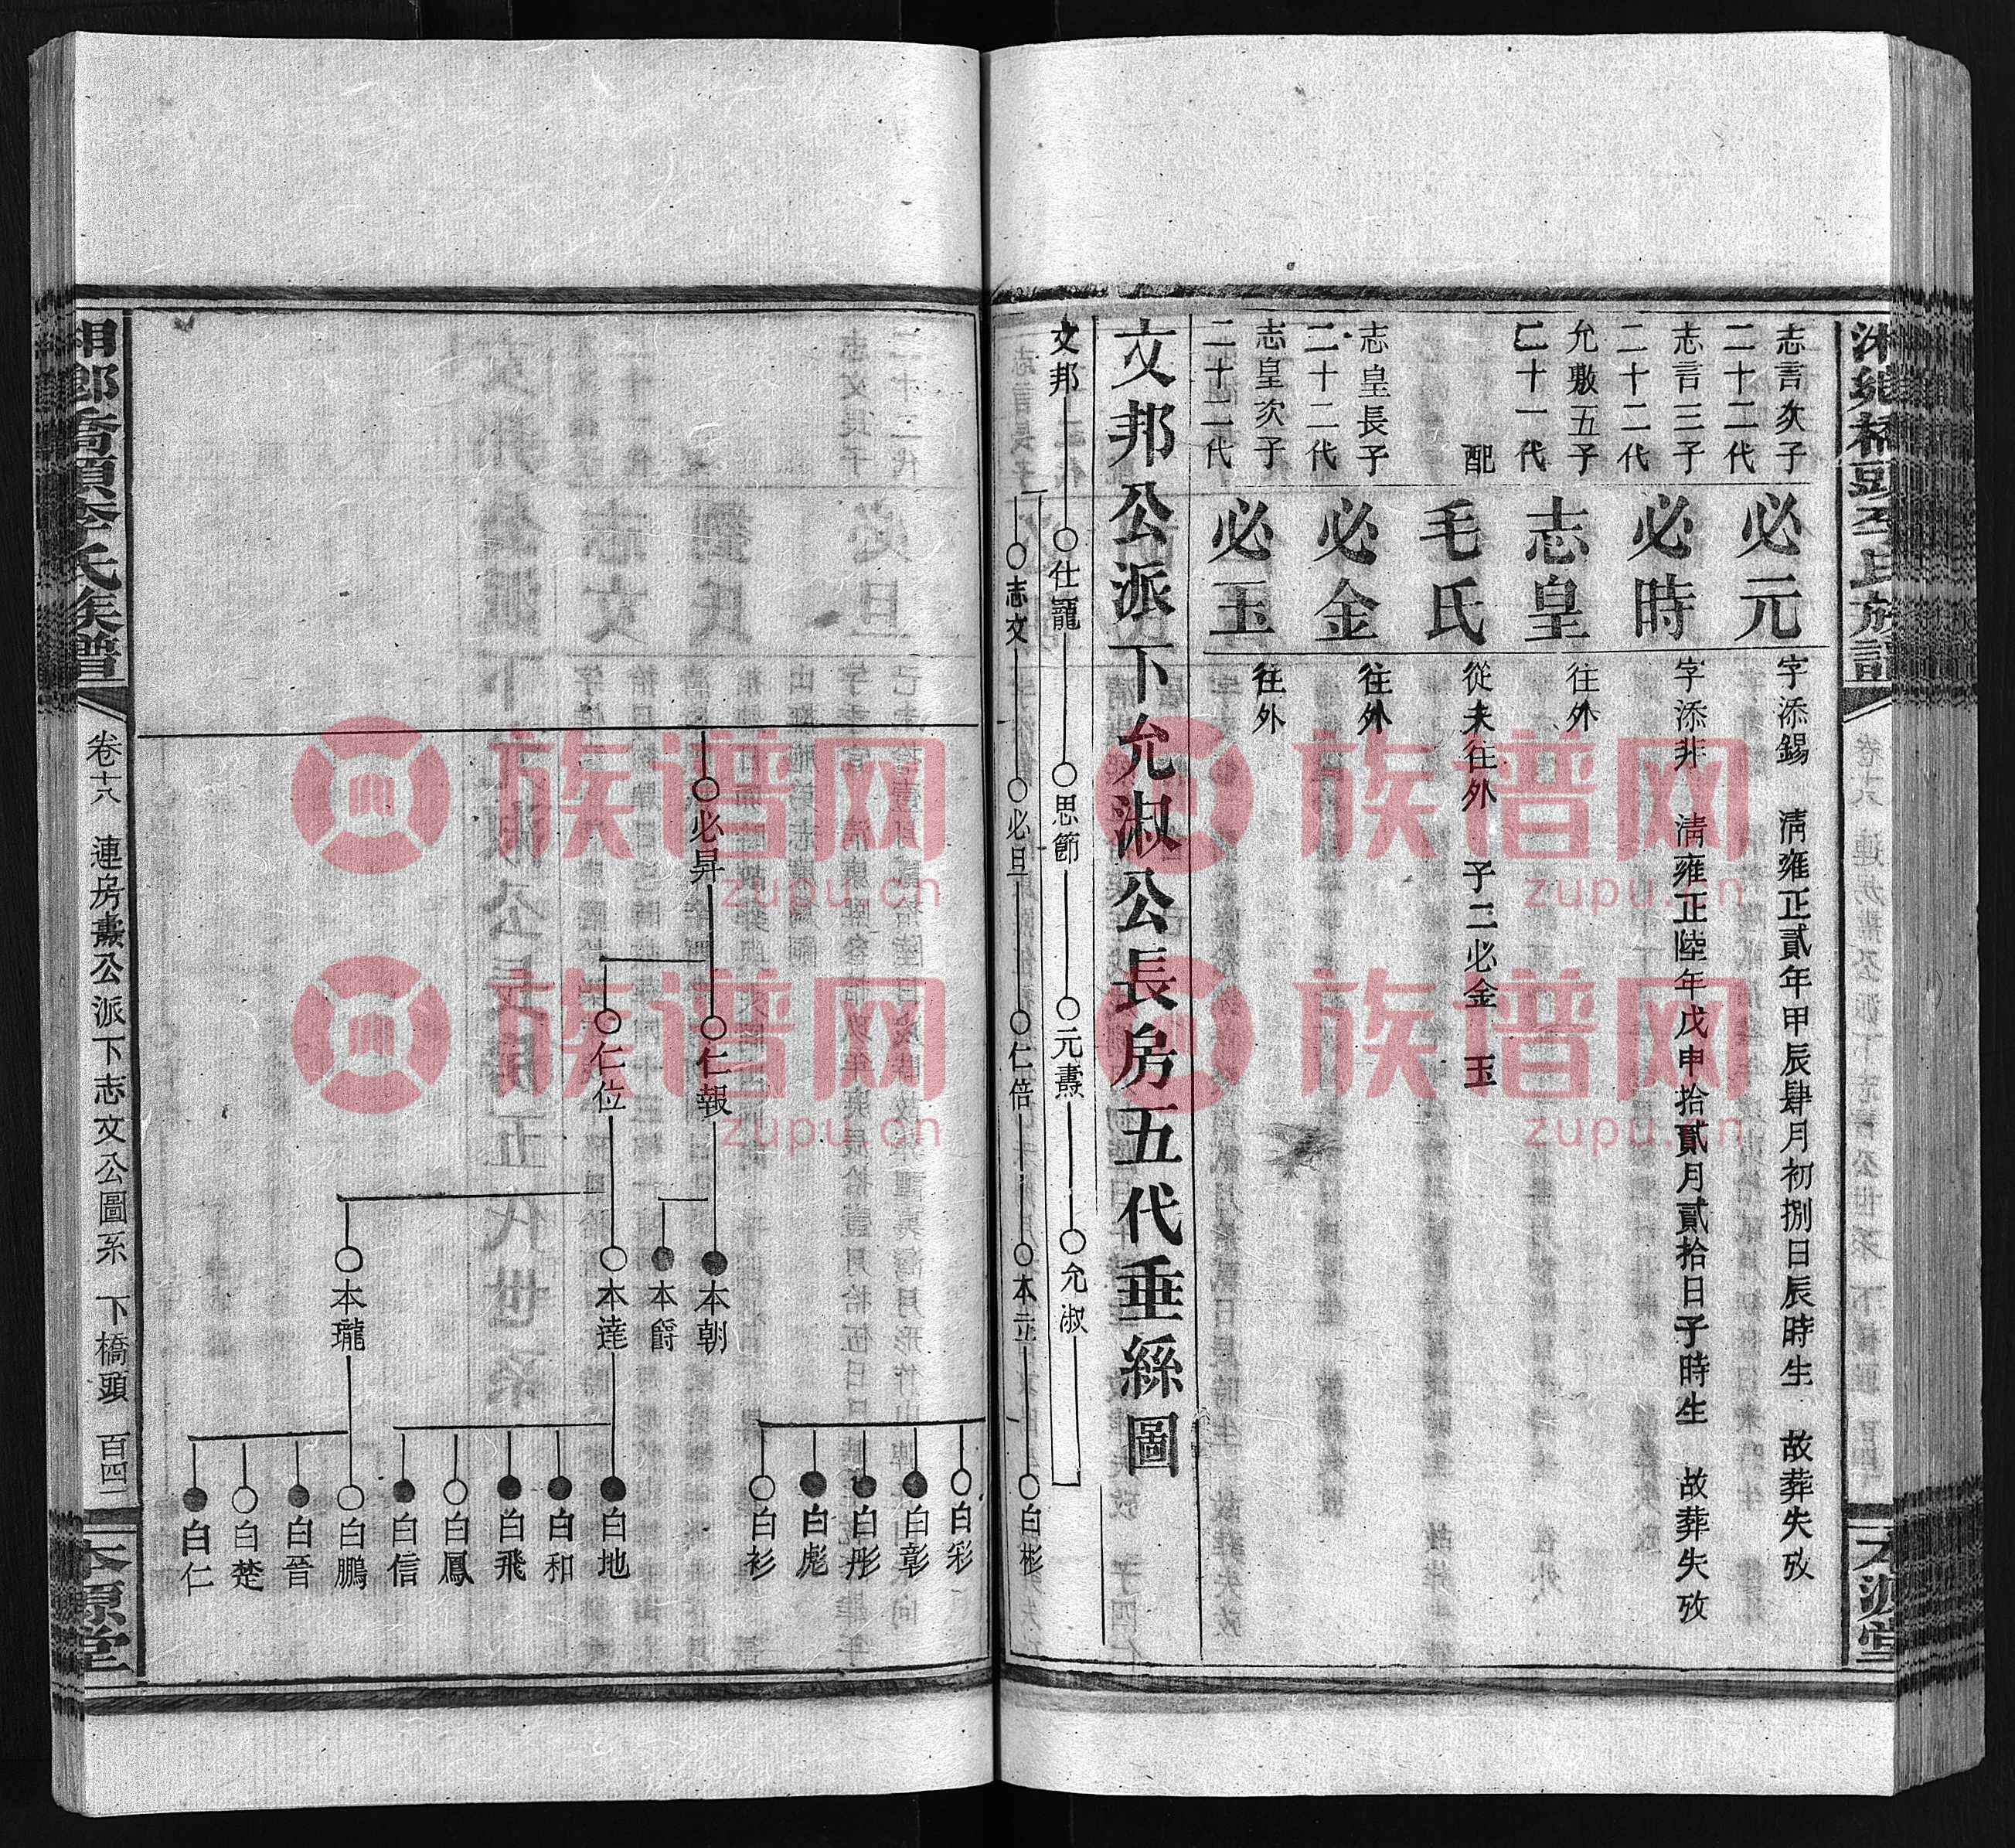 志言次子
二十二代
必元
字添錫 清雍正貳年甲辰肆月初捌日辰時生 故葬失攷
志言三子
二十二代
必時
字添非 清雍正陸年戊申拾貳月貳拾日子時生 故葬失攷
允敷五子
二十一代
志皇
往外
配
毛氏
從夫往外 子二必金 玉
志皇長子
二十二代
必金
往外
志皇次子
二十二代
必玉
往外
文邦公派下允淑公長房五代垂絲圖
文邦
仕寵
思節
元壽
允淑
志文
必旦
仁倍
本立
白彬
白彩
白彰
白彤
白彪
白衫
必昇
仁報
仁位
本朝
本爵
本達
本瓏
白地
白和
白飛
白鳳
白信
白鵬
白晉
白楚
白仁
湘鄉橋頭李氏族譜
卷十八 連房壽公派下志文公圖系 下橋頭 百四二
本源堂
族谱网
zupu.cn
族谱网
zupu.cn
族谱网
zupu.cn
族谱网
zupu.cn